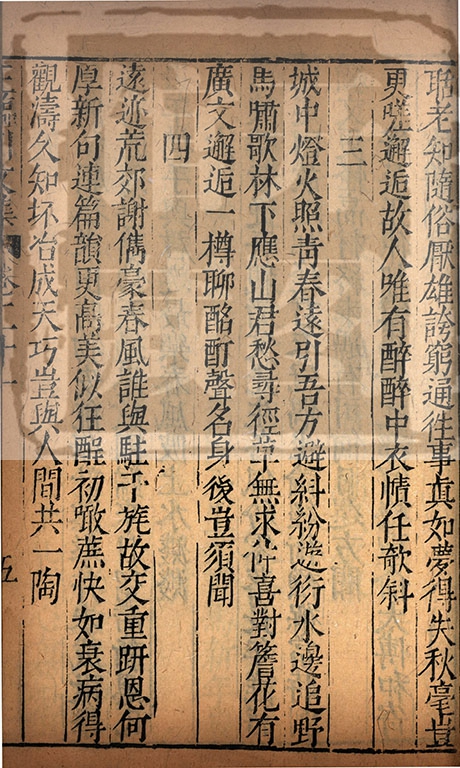 耼老知隨俗厭雄誇窮通往事真如夢得失秋毫豈
更嗟邂逅故人唯有醉醉中衣幘任欹斜
三
城中燈火照青春遠引吾方避糾紛遊衍水邊追野
馬嘯歌林下應山君愁尋徑草無求仲喜對簷花有
廣文邂逅一樽聊酩酊聲名身後豈須聞
四
遠迹荒郊謝儁豪春風誰與駐干旄故交重趼恩何
厚新句連篇韻更高美似狂酲初噉蔗快如衰病得
觀濤久知坏冶成天巧豈與人間共一陶
文集 卷二十一 五